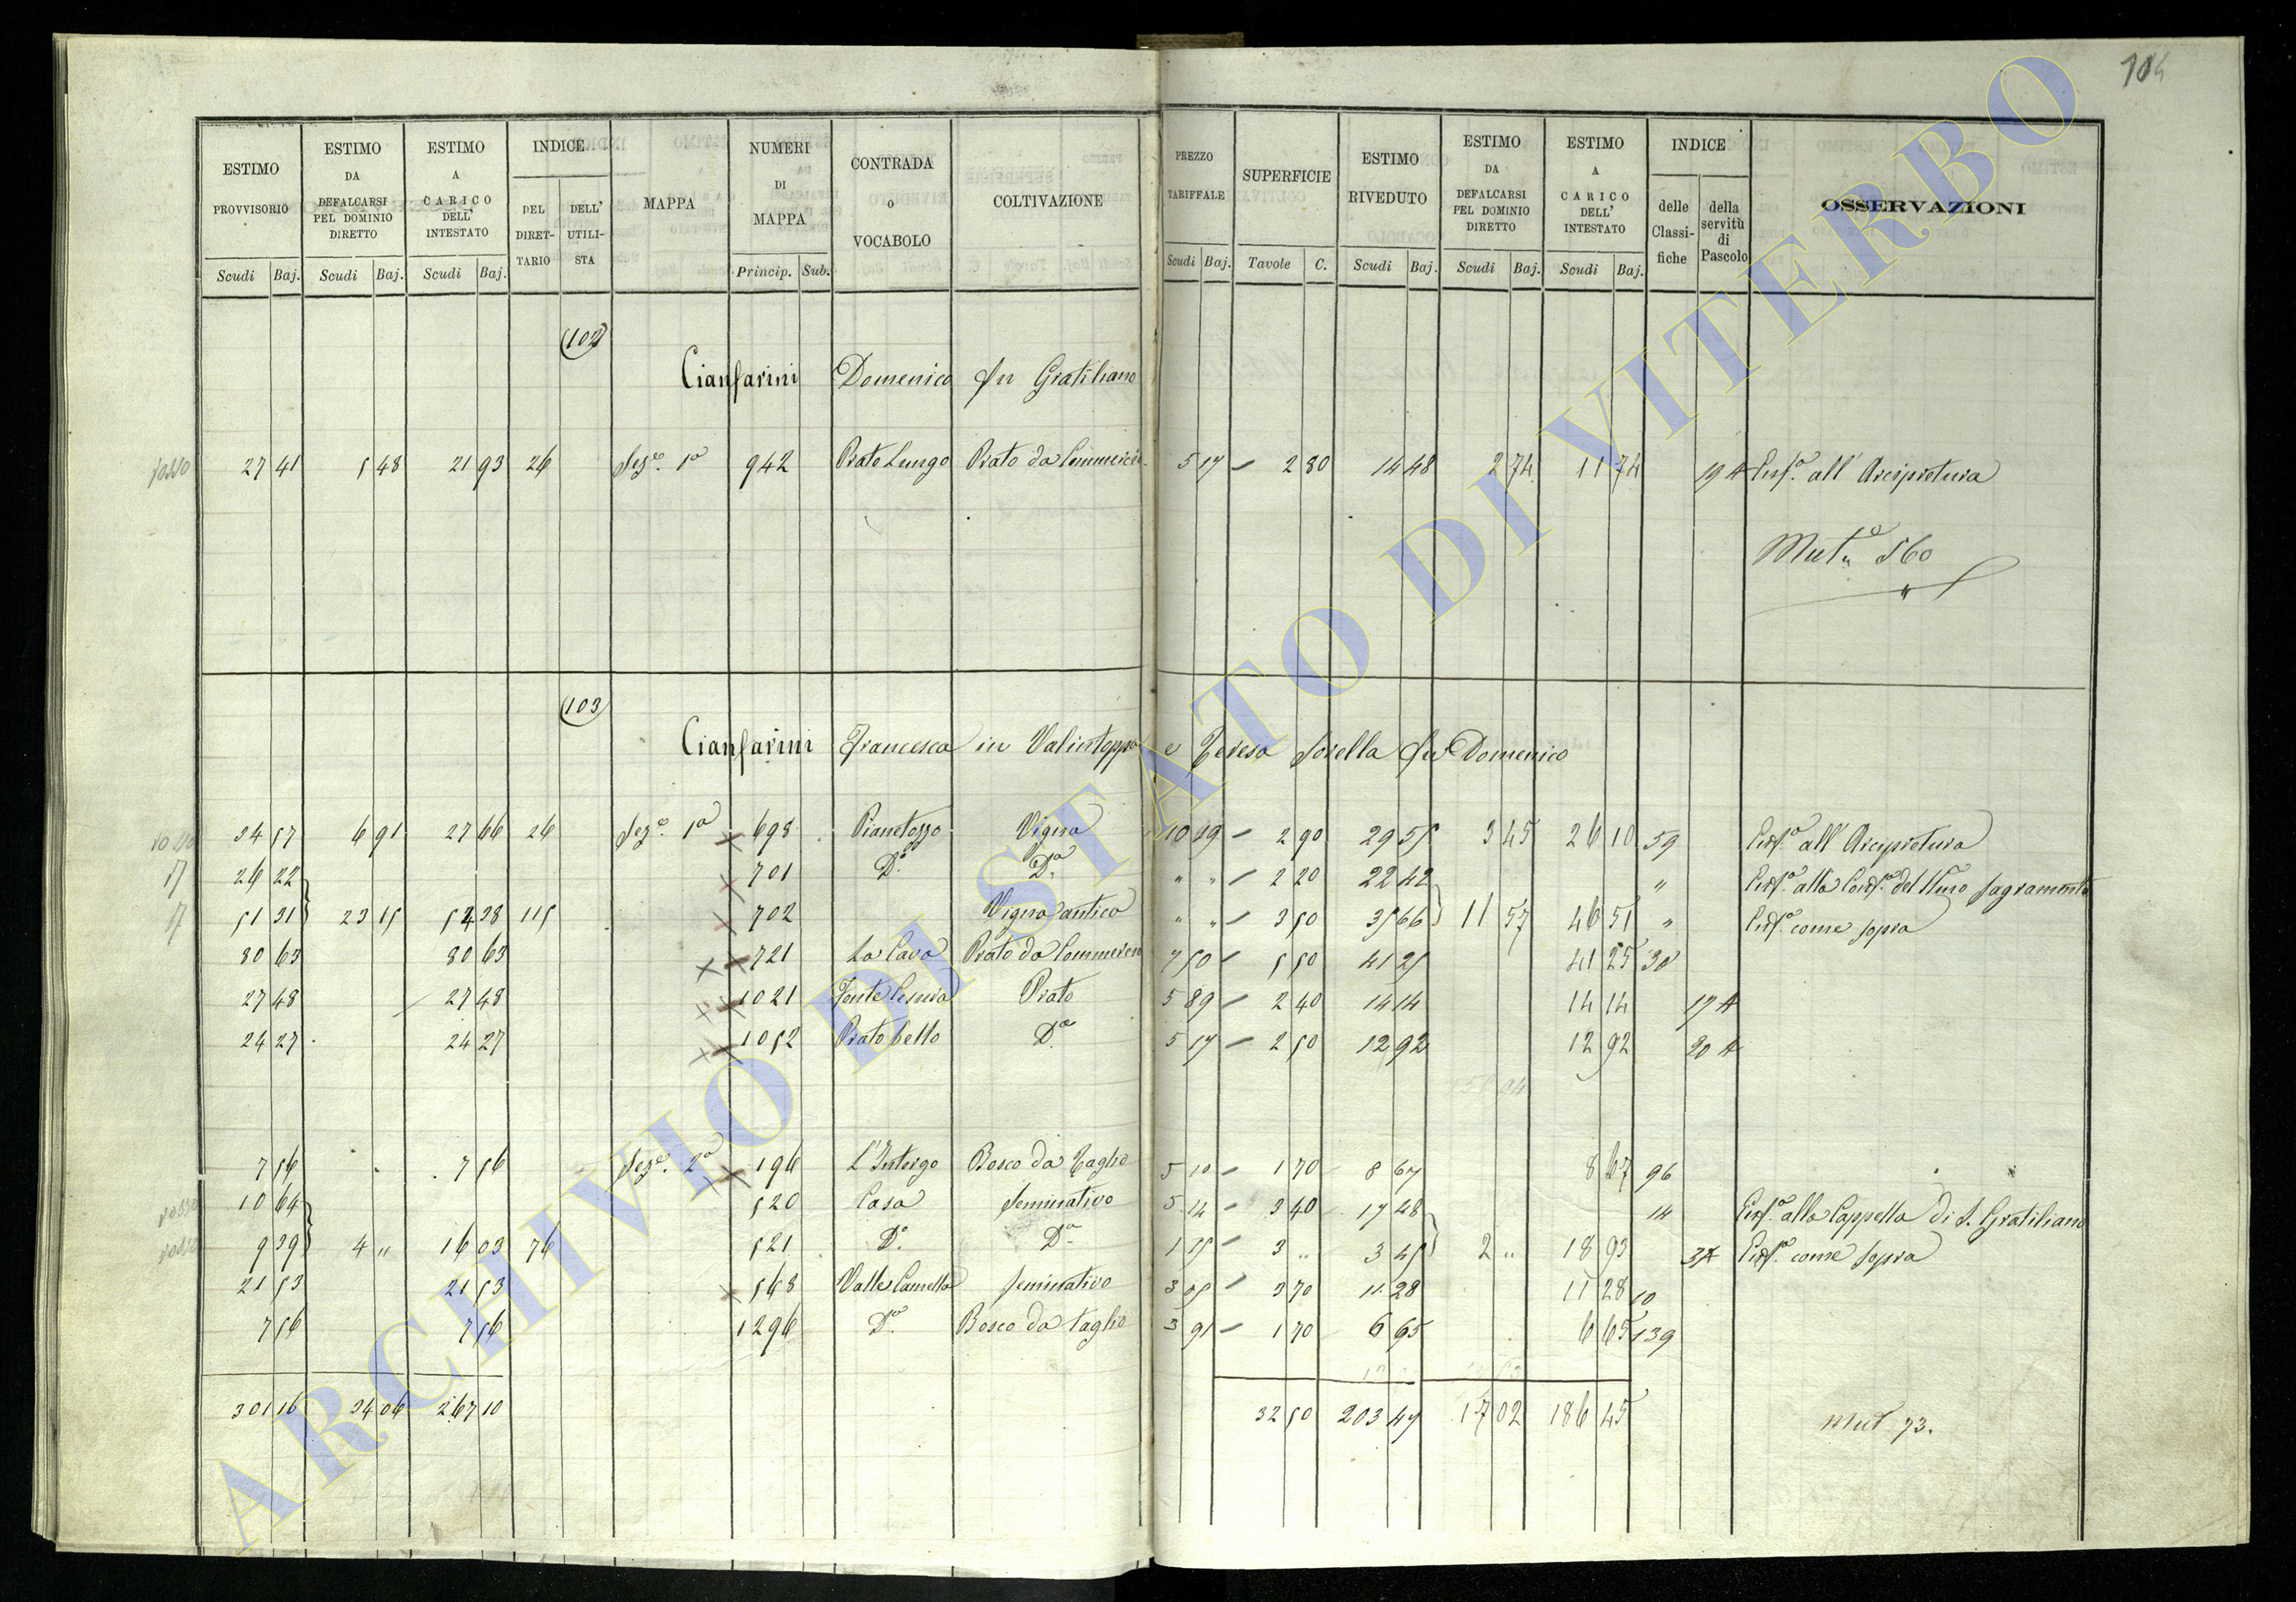 104
ESTIMO PROVVISORIO Scudi Baj. | ESTIMO DA DEFALCARSI PEL DOMINIO DIRETTO Scudi Baj. | ESTIMO A CARICO DELL' INTESTATO Scudi Baj. | INDICE DEL DIRETTARIO DELL' UTILISTA | MAPPA | NUMERI DI MAPPA Princip. Sub. | CONTRADA o VOCABOLO | COLTIVAZIONE | PREZZO TARIFFALE Scudi Baj. | SUPERFICIE Tavole C. | ESTIMO RIVEDUTO Scudi Baj. | ESTIMO DA DEFALCARSI PEL DOMINIO DIRETTO Scudi Baj. | ESTIMO A CARICO DELL' INTESTATO Scudi Baj. | INDICE delle Classifiche della servitù di Pascolo | OSSERVAZIONI
102
Cianfarini Domenico fu Gratiliano
rosso 27 41 5 48 21 93 26 Seze. 1a 942 Prato Lungo Prato da Commercio 5 17 – 2 80 14 48 2 74 11 74 19 A all' Arcipretura
Muta 560
103
Cianfarini Francesca in Valintoppo e Teresa sorella fu Domenico
rosso 34 57 6 91 27 66 26 Seze. 1a 698 Pianetozzo Vigna 10 19 – 2 90 29 55 3 45 26 10 59 all' Arcipretura
26 22 701 Do. Da. " " – 2 20 22 42 " alla del Ssmo Sagramento
51 31 23 15 54 38 115 702 Vigna antica " " – 3 50 35 66 11 57 46 51 " come sopra
80 63 80 63 721 La Cava Prato da Commercio 7 50 – 5 50 41 25 41 25 30
27 48 27 48 1021 Prato 5 89 – 2 40 14 14 14 14 17 A
24 27 24 27 1052 Prato bello Do. 5 17 – 2 50 12 92 12 92 20 A
7 56 7 56 Seze. 2a 196 L'Intorgo Bosco da Taglio 5 10 – 1 70 8 67 8 67 96
rosso 10 64 520 Casa Seminativo 5 14 – 3 40 17 48 14 alla Cappella di S. Gratiliano
rosso 9 39 4 " 16 03 76 521 Do. Da. 1 15 – 3 " 3 45 2 " 18 93 come sopra
21 53 21 53 568 Valle Camella Seminativo 3 05 – 3 70 11 28 11 28 10
7 56 7 56 1296 Do. Bosco da taglio 3 91 – 1 70 6 65 6 65 139
301 16 34 06 267 10 32 50 203 47 17 02 186 45
Mut 73.
ARCHIVIO DI STATO DI VITERBO